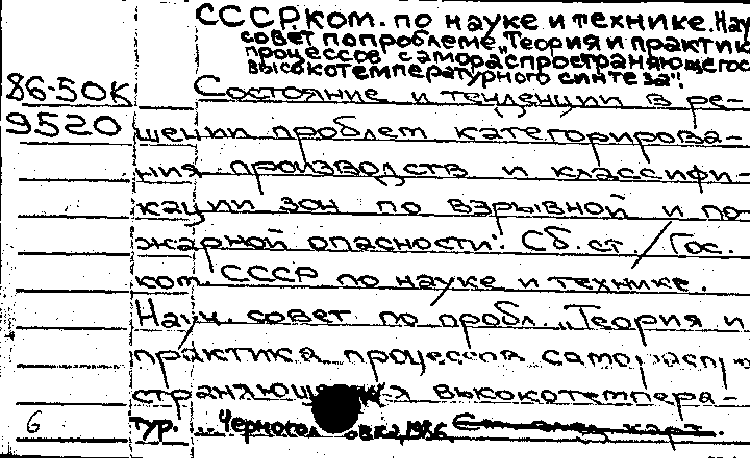 СССР. Ком. по науке и технике. Нау
совет по проблеме „Теория и практик
процессов самораспространяющегос
высокотемпературного синтеза".
86-50К Состояние и тенденции в ре-
9520 шении проблем категорирова-
ния производств и классифи-
кации зон по взрывной и по-
жарной опасности". Сб. ст. / Гос.
ком. СССР по науке и технике.
Науч. совет по пробл. „Теория и
практика процессов самораспро
страняющегося высокотемпера-
6 тур. ... Черногол овка, 1986